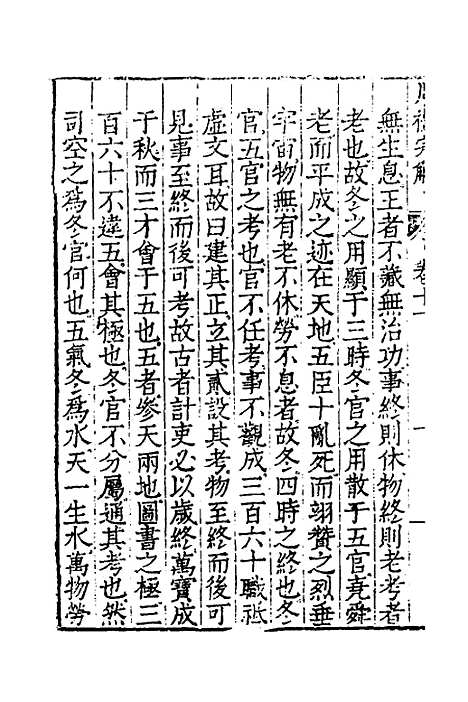 無生息王者不藏無治功事終則休物終則老考者
老也故冬之用顯于三時冬官之用散于五官堯舜
老而平成之迹在天地五臣十亂死而翊贊之烈垂
宇宙物無有老不休勞不息者故冬四時之終也冬
官五官之考也官不任考事不觀成三百六十職祗
虛文耳故曰建其正立其貳設其考物至終而後可
見事至終而後可考故古者計吏必以歲終萬寶成
于秋而三才會于五也五者參天兩地圖書之極三
百六十不違五會其極也冬官不分屬通其考也然
司空之爲冬官何也五氣冬爲水天一生水萬物勞